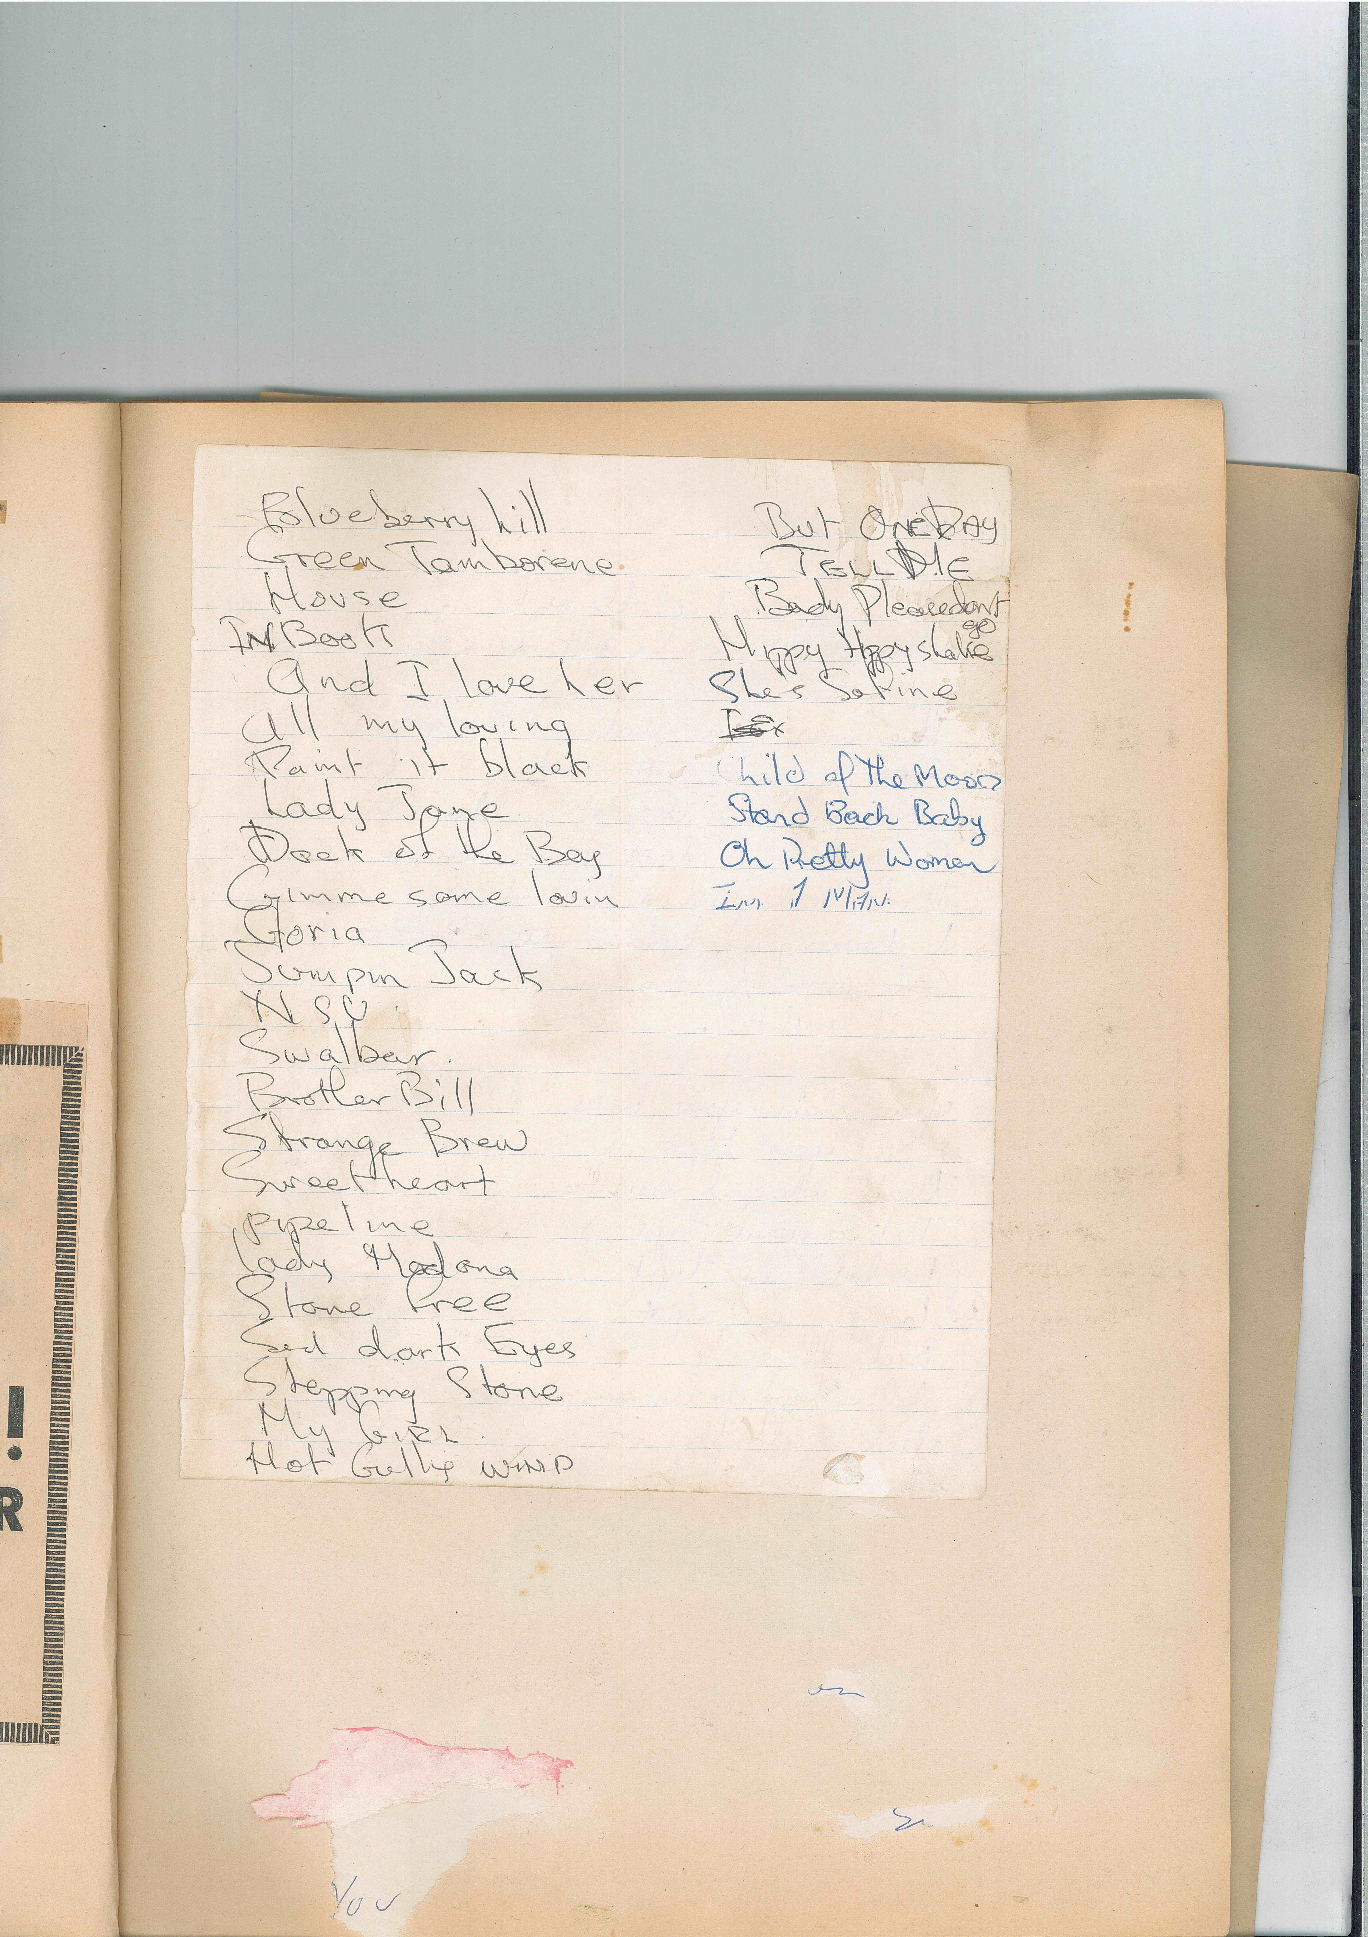 Blueberry hill
Green Tamborene
House
IN Book
And I love her
all my loving
Paint it black
Lady Jane
Dock of the Bay
Gimme some lovin
Goria
Jumpin Jack
NSU
Swalbar.
Brother Bill
Strange Brew
Sweetheart
pipeline
Lady Madona
Stone free
Sad dark Eyes
Stepping Stone
My GIRL
Hot Gully WIND
But ONE DAY
TELL ME
Bady Please dont
go
Hippy Hippy shake
She's So fine
Child of The Moon
Stand Back Baby
Oh Pretty Woman
Im A MAN.
!
R
You